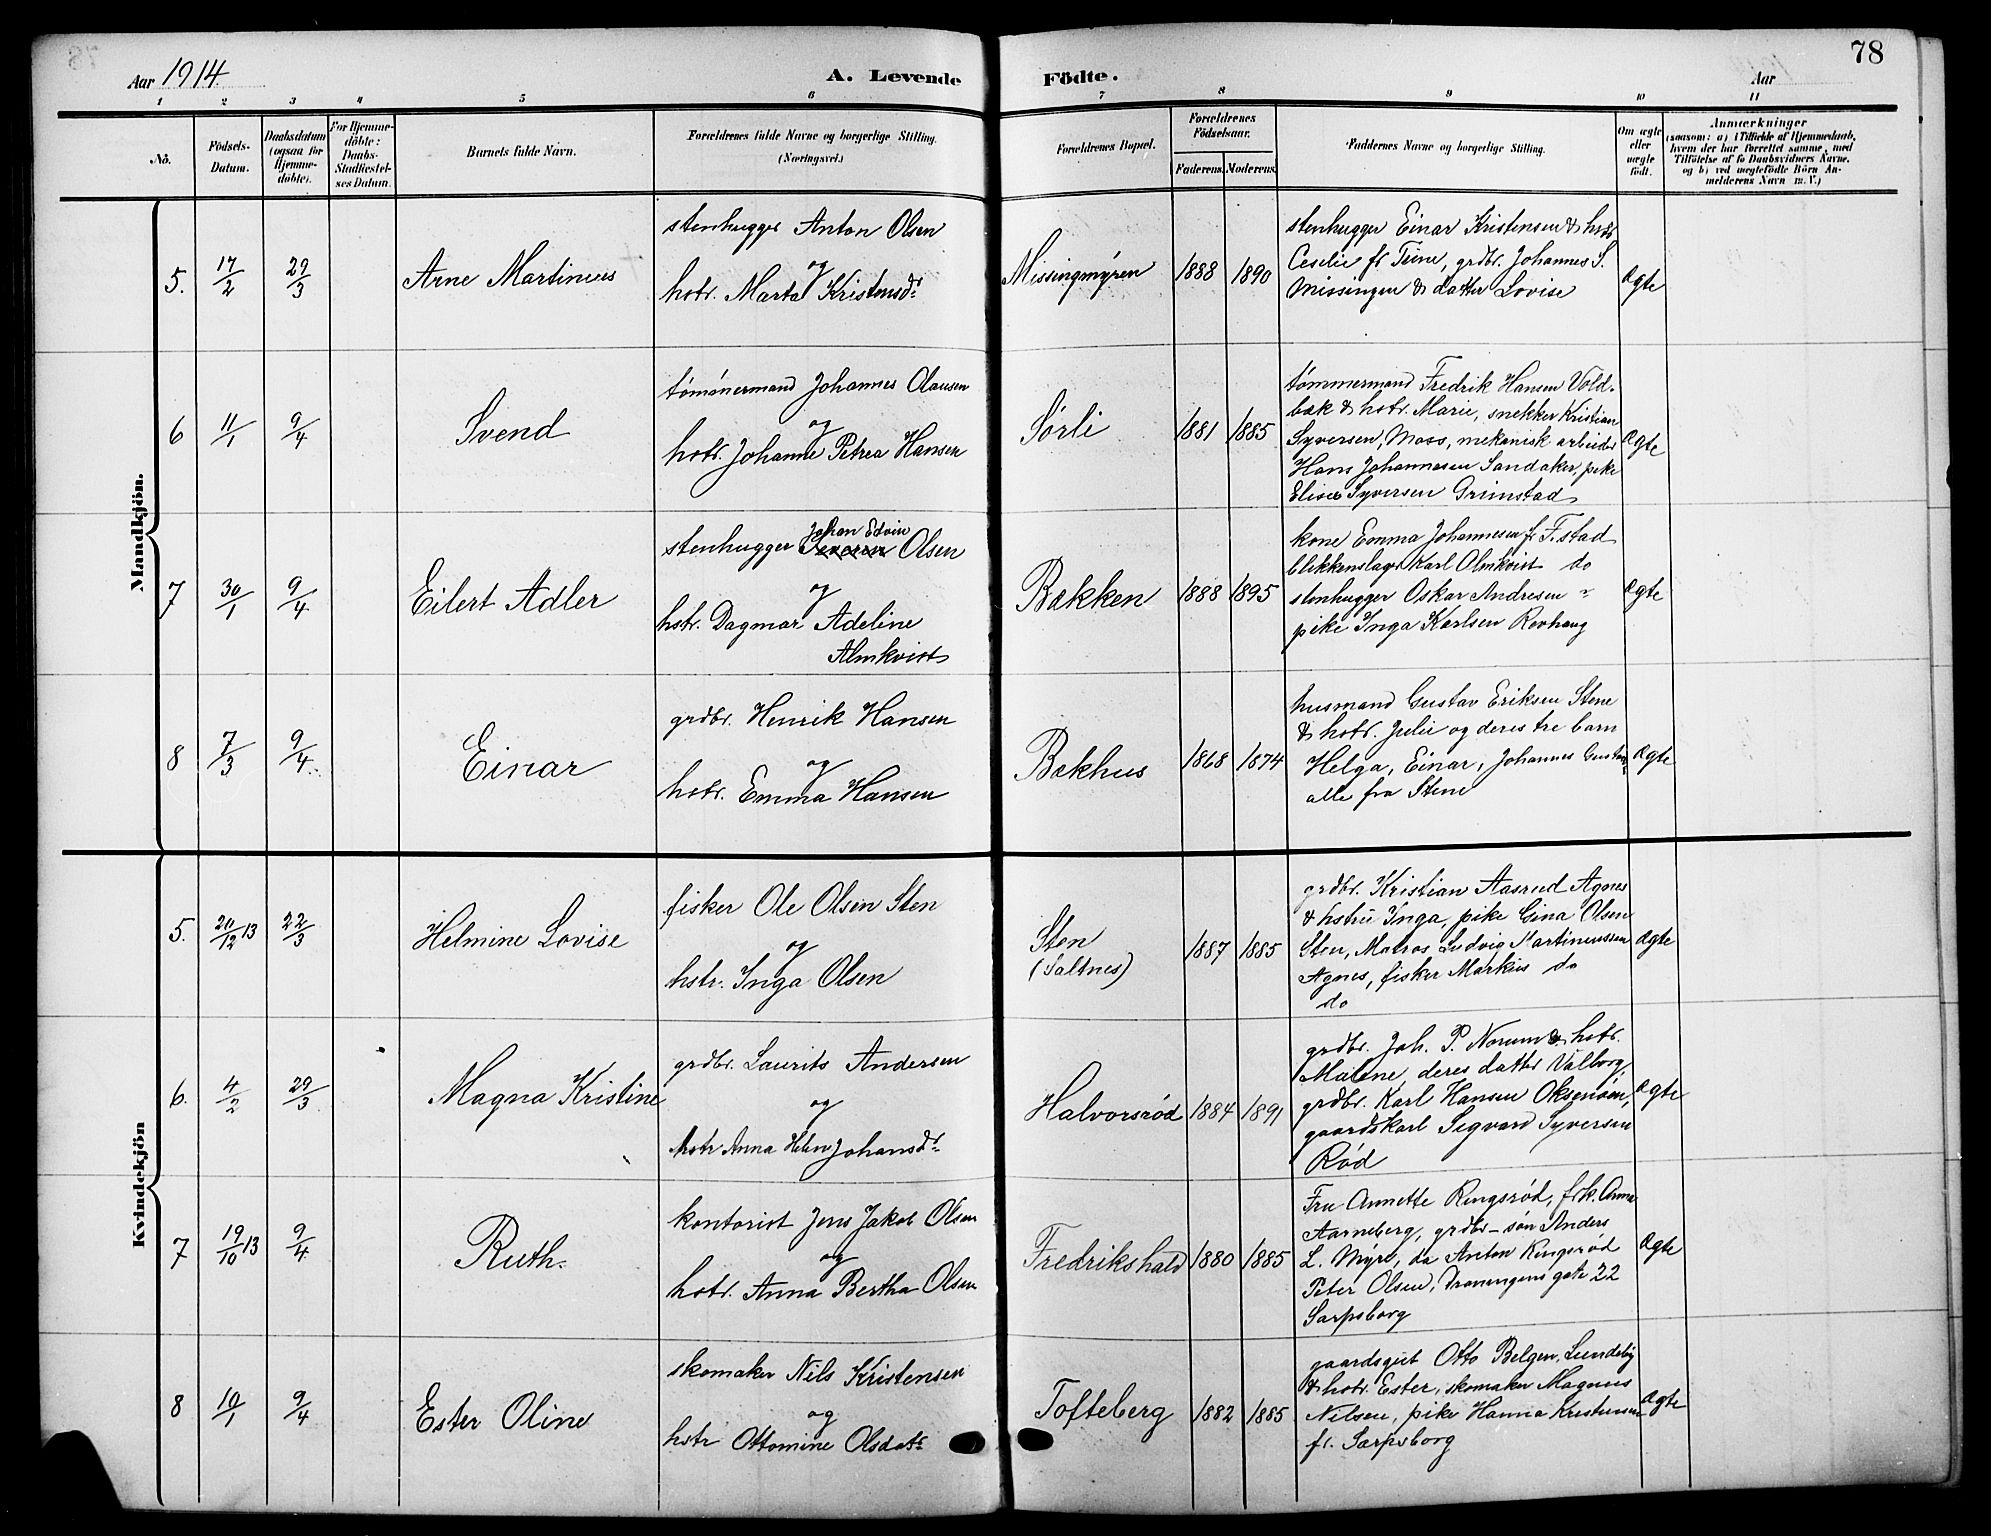 78
Aar 1914.
A. Levende Födte.
Aar
1 2 3 4 5 6 7 8 9 10 11
No.
Födsels-
Datum.
Daabsdatum
(ogsaa for
Hjemme-
döbte).
For Hjemme-
döbte:
Daabs-
Stadfæstel-
ses Datum.
Barnets fulde Navn.
Forældrenes fulde Navne og borgerlige Stilling.
(Næringsvei.)
Forældrenes Bopæl.
Forældrenes
Födselsaar.
Faderens. Moderens.
Faddernes Navne og borgerlige Stilling.
Om ægte
eller
uægte
födt.
Anmærkninger
(saasom: a) i Tilfælde af Hjemmedaab,
hvem der har forrettet samme, med
Tilföielse af to Daabsvidners Navne,
og b) ved uægtefödte Börn An-
melderens Navn m. V.)
Mandkjön.
5. 17/2 29/3 Arne Martinius
stenhugger Anton Olsen
og
hstr. Marta Kristensdr
Missingmyren 1888 1890
stenhugger Einar Kristensen & hstr
Cecelie fr Tune, grdbr. Johannes S.
Missingen & datter Lovise
Ægte
6 11/1 9/4 Svend
tømmermand Johannes Olausen
og
hstr. Johanne Petrea Hansen
Sørli 1881 1885
tømmermand Fredrik Hansen Vold-
bæk & hstr. Marie, snekker Kristian
Syversen, Moss, mekanisk arbeider
Hans Johannesen Sandaker, pike
Elise Syversen Grimstad
Ægte
7 30/1 9/4 Eilert Adler
Johan Edvin
stenhugger Olsen
og
hstr. Dagmar Adeline
Almkvist
Bækken 1888 1895
kone Emma Johannesen fr F.stad
blikkenslager Karl Olmkvist do
stenhugger Oskar Andresen "
pike Inga Karlsen Rovhaug
Ægte
8 7/3 9/4 Einar
grdbr. Henrik Hansen
og
hstr. Emma Hansen
Bækhus 1868 1874
husmand Gustav Eriksen Stene
& hstr. Julie og deres tre barn
Helga, Einar, Johannes Gustav
alle fra Stene
Ægte
Kvindekjön
5. 20/12 13 22/3 Helmine Lovise
fisker Ole Olsen Sten
og
hstr. Inga Olsen
Sten
(Saltnes)
1887 1885
grdbr. Kristian Aasrud Agnes
& hstru Inga, pike Gina Olsen
Sten, Matros Ludvig Martinussen
Agnes, fisker Markus do
do
Ægte
6. 4/2 29/3 Magna Kristine
grdbr. Laurits Andersen
og
hstr Anna Helene Johansdr
Halvorsrød 1884 1891
grdbr. Joh. P. Norum & hstr.
Malene, deres datter Valborg,
grdbr. Karl Hansen Oksenøen,
gaardskarl Sigvard Syversen
Rød
Ægte
7 19/10 13 9/4 Ruth.
kontorist Jens Jakob Olsen
og
hstr. Anna Bertha Olsen
Fredrikshald 1880 1885
Fru Annette Ringsrød, frk. Anna
Aarneberg, grdbr-søn Anders
L. Myre, do Anton Ringsrød
Peter Olsen, Dronningens gate 22
Sarpsborg
Ægte
8 10/1 9/4 Ester Oline
skomaker Nils Kristensen
og
hstr Ottomine Olsdatr
Tofteberg 1882 1885
gaardsgut Otto Belgen, Lundeby
& hstr. Ester, skomaker Magnus
Nilsen, pike Hanna Kristensen
fr. Sarpsborg
Ægte